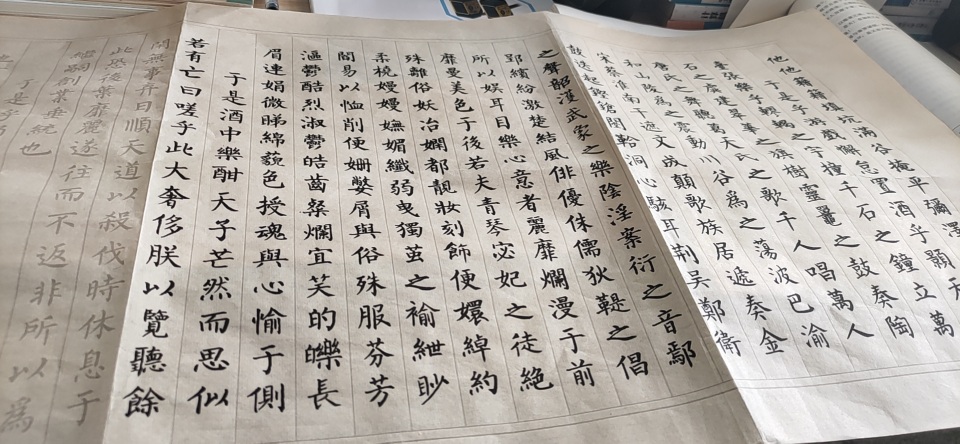 他他籍籍填坑滿谷掩平彌澤
于是乎游戲懈怠置酒乎顥天
之臺張樂乎轇輵之宇撞千石之鐘立萬
石之虡建翠華之旗樹靈鼉之鼓奏陶
唐氏之舞聽葛天氏之歌千人唱萬人
和山陵為之震動川谷為之蕩波巴渝
宋蔡淮南干遮文成顛歌族居遞奏金
鼓迭起鏗鎗闛鞈洞心駭耳荊吳鄭衛
之聲韶濩武象之樂陰淫案衍之音鄢
郢繽紛激楚結風俳優侏儒狄鞮之倡
所以娛耳目樂心意者麗靡爛漫于前
靡曼美色于後若夫青琴宓妃之徒絕
殊離俗妖冶嫻都靚妝刻飾便嬛綽約
柔橈嫚嫚嫵媚纖弱曳獨繭之褕紲眇
閻易以恤削便姍嫳屑與俗殊服芬芳
漚鬱酷烈淑鬱皓齒粲爛宜笑的皪長
眉連娟微睇綿藐色授魂與心愉于側
于是酒中樂酣天子芒然而思似
若有亡曰嗟乎此大奢侈朕以覽聽餘
閒無事棄日順天道以殺伐時休息于
此恐後葉靡麗遂往而不返非所以為
繼嗣創業垂統也
于是乎